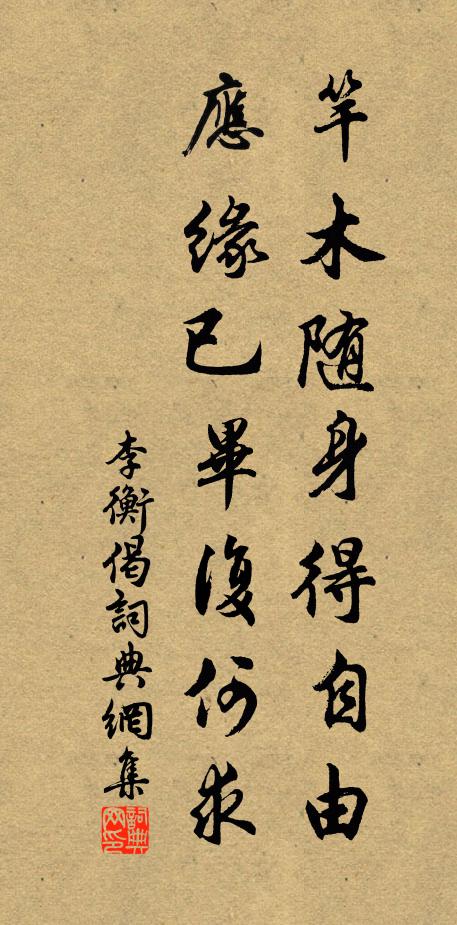 竿木随身得自由
應緣已畢復何求
李衡偈詞典網集
詞典網印